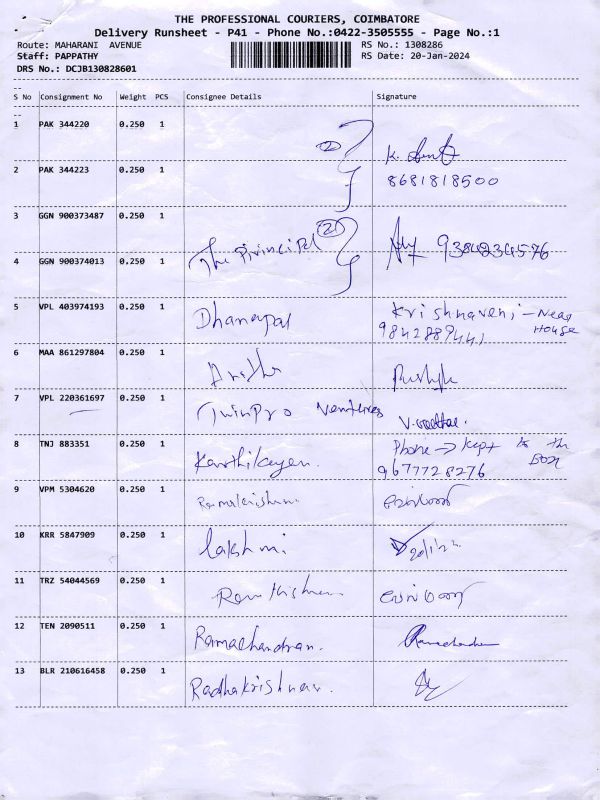 THE PROFESSIONAL COURIERS, COIMBATORE
Delivery Runsheet - P41 - Phone No.:0422-3505555 - Page No.:1
Route: MAHARANI AVENUE RS No.: 1308286
Staff: PAPPATHY RS Date: 20-Jan-2024
DRS No.: DCJB130828601
S No Consignment No Weight PCS Consignee Details Signature
1 PAK 344220 0.250 1 (2) K.
2 PAK 344223 0.250 1 8681818500
3 GGN 900373487 0.250 1 The Principal (2)
4 GGN 900374013 0.250 1
5 VPL 403974193 0.250 1 Dhanapal Krishnaveni - Near House
9842889441
6 MAA 861297804 0.250 1
7 VPL 220361697 0.250 1 TwinPro Ventures V.
8 TNJ 883351 0.250 1 Karthikeyen. Phone → Kept to the Box
9677728276
9 VPM 5304620 0.250 1 Ramakrishnan
10 KRR 5847909 0.250 1 lakshmi
11 TRZ 54044569 0.250 1
12 TEN 2090511 0.250 1 Ramachandran. Ramachandran
13 BLR 210616458 0.250 1 Radhakrishnan.